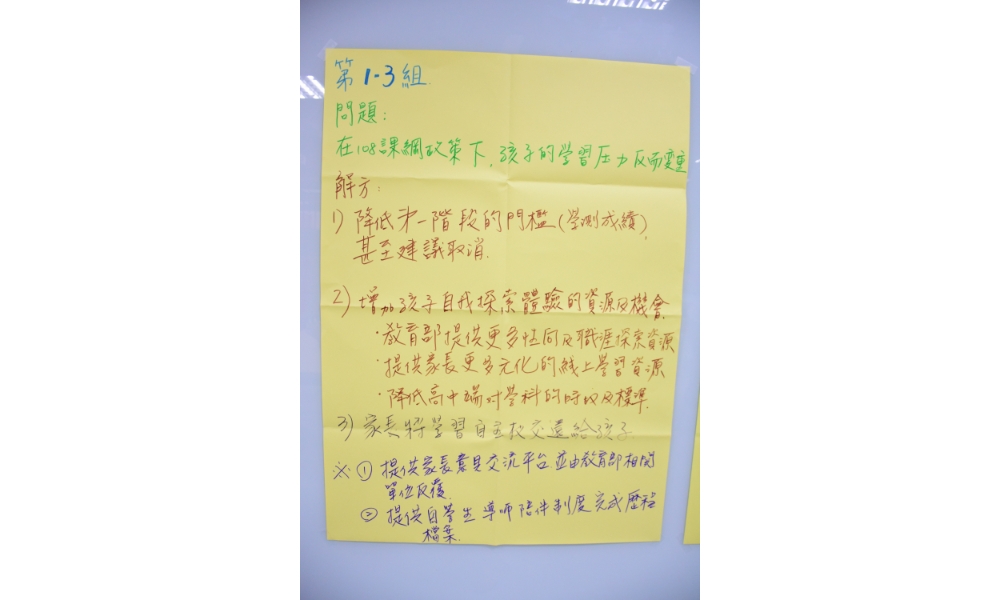 第1-3組
問題:
在108課綱政策下,孩子的學習压力反而变重
解方:
1) 降低第一階段的門檻(學測成績),
甚至建議取消.
2) 增加孩子自我探索體驗的資源及機會
·教育部提供更多性向及職涯探索資源
·提供家長更多元化的線上學習資源
·降低高中端对學科的時收及標準.
3) 家長將學習自主权交還給孩子.
※ ① 提供家長意見交流平台並由教育部相関
單位反覆.
② 提供自學生導師陪伴制度完成歷程
檔案.